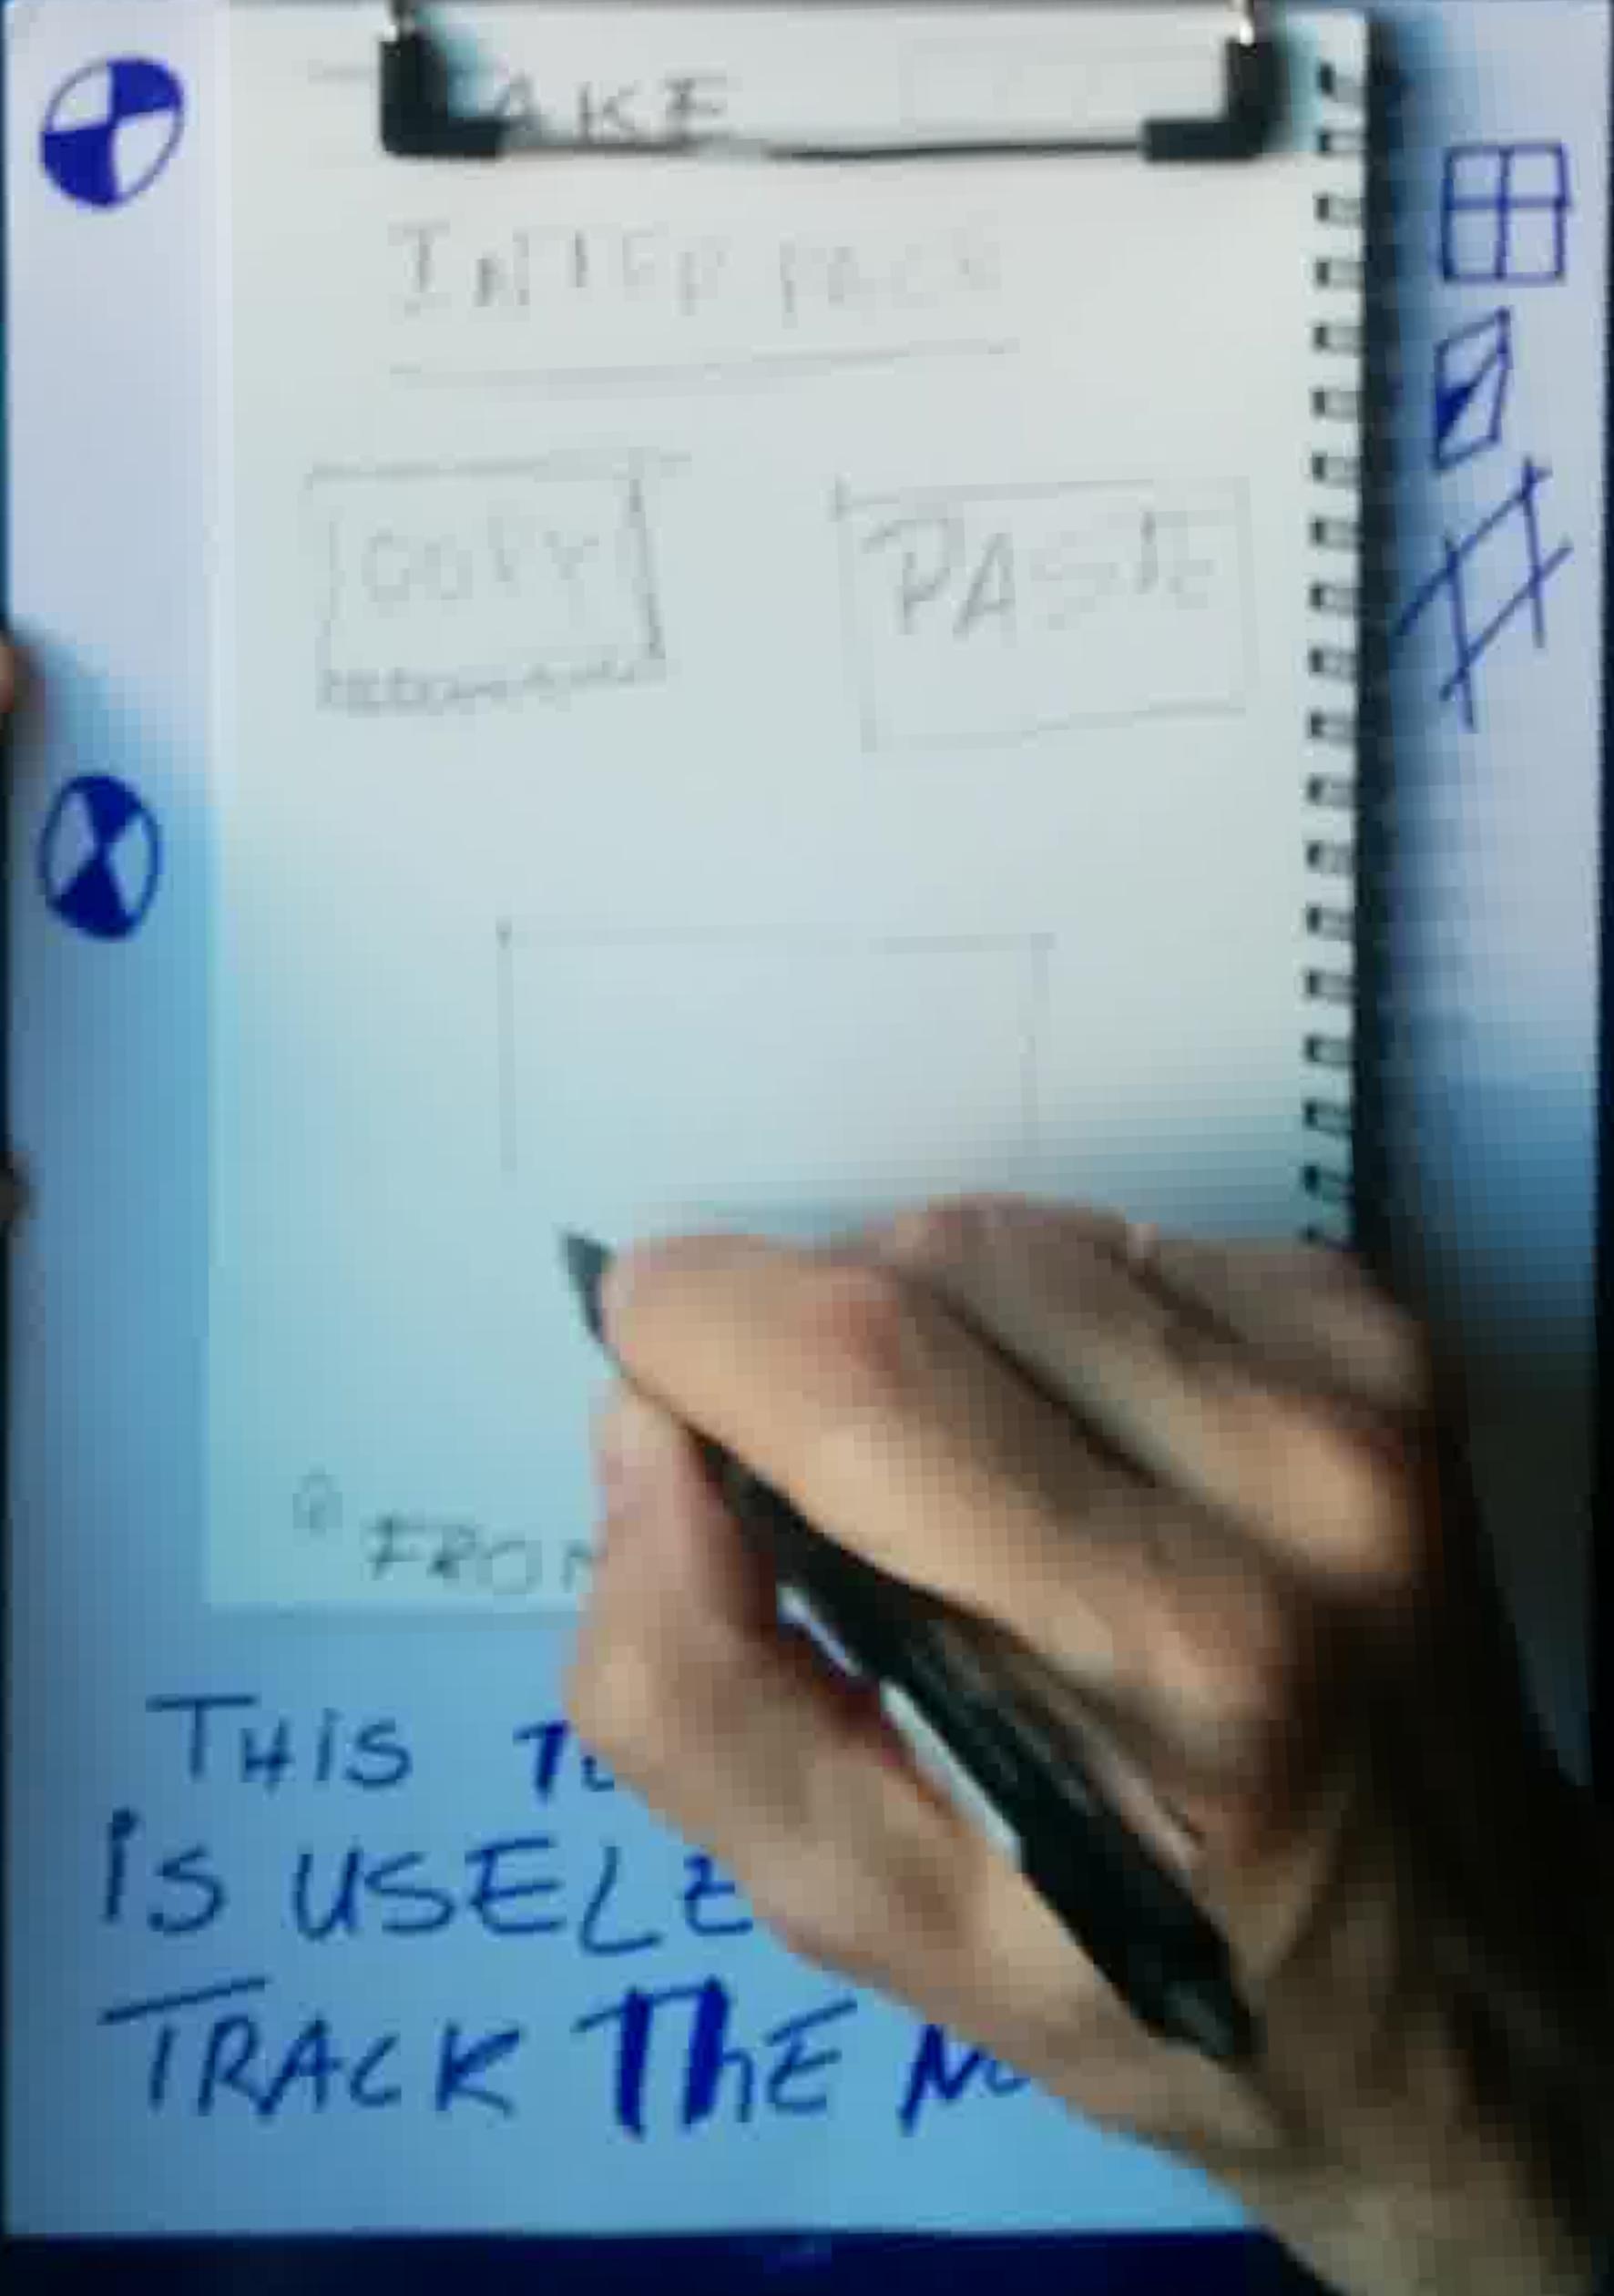 AKE
INTERFACE
COPY PASTE
FROM
THIS
IS USELE
TRACK THE